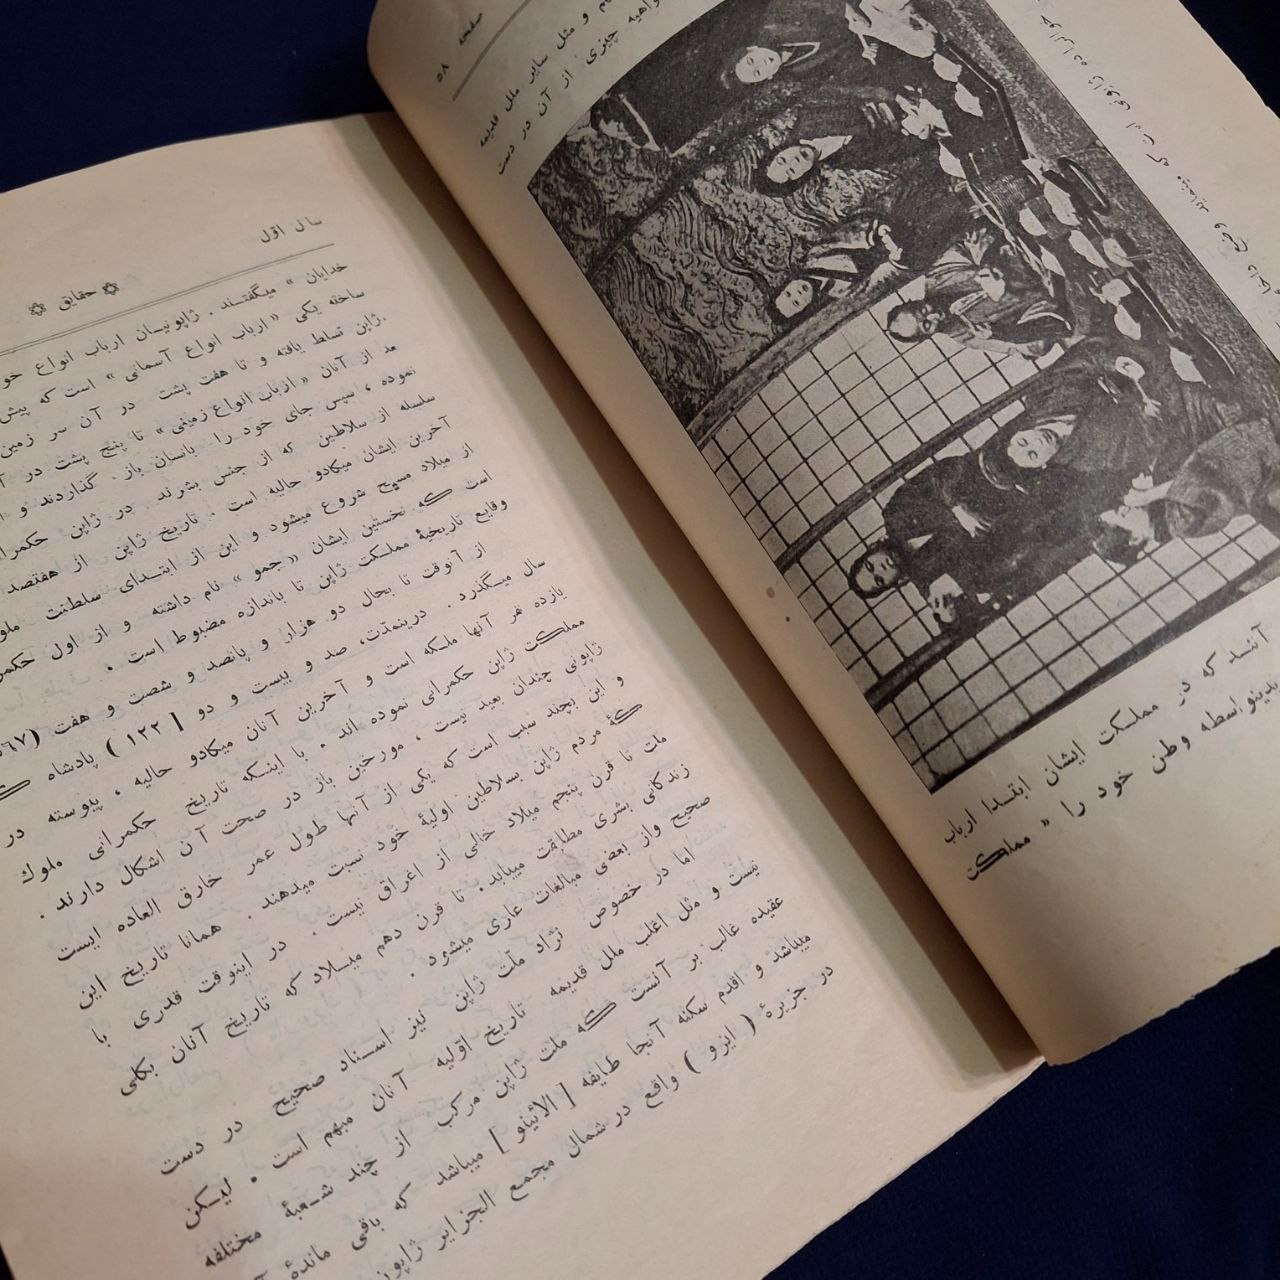 صفحه ۵۸
و مثل سایر ملل قدیمه
چیزی از آن در دست
آنند که در مملکت ایشان ابتدا ارباب
بدینواسطه وطن خود را « مملکت
سال اوّل
حقایق
خدایان » میگفتند . ژاپونیان ارباب انواع
ساخته یکی « ارباب انواع آسمانی » است که پیش
ژاپن تسلط یافته و تا هفت پشت در آن سر زمین
از آنان « ارباب انواع زمینی » تا پنج پشت در
نموده ، سپس جای خود را باسان باز گذاردند و
سلسله از سلاطین که از جنس بشرند در ژاپن
آخرین ایشان میکادو حالیه است . تاریخ ژاپن از هفتصد
از میلاد مسیح شروع میشود و این از ابتدای سلطنت
است که نخستین ایشان « جمو » نام داشته و از اول
وقایع تاریخیهٔ مملکت ژاپن تا باندازه مضبوط است .
از آنوقت تا بحال دو هزار و پانصد و شصت و هفت
سال میگذرد . درینمدّت، صد و بیست و دو [ ۱۲۲ ) پادشاه
یازده نفر آنها ملکه است و آخرین آنان میکادو حالیه ، پیوسته در
مملکت ژاپن حکمرانی نموده اند . با اینکه تاریخ حکمرانی ملوك
ژاپونی چندان بعید نیست ، مورخین باز در صحت آن اشکال دارند .
و این بچند سبب است که یکی از آنها طول عمر خارق العاده ایست
کهٔ مردم ژاپن بسلاطین اولیهٔ خود نسبت میدهند . همانا تاریخ این
ملت تا قرن پنجم میلاد خالی از اغراق نیست . در اینوقت قدری با
زندگانی بشری مطابقت میبابد . تا قرن دهم میلاد که تاریخ آنان بکلی
صحیح واز بعضی مبالغات عاری میشود .
اما در خصوص نژاد ملّت ژاپن نیز اسناد صحیح در دست
نیست و مثل اغلب ملل قدیمه تاریخ اوّلیه آنان مبهم است . لیکن
عقیده غالب بر آنست که ملت ژاپن مرکب از چند شعبهٔ مختلفه
میباشد و اقدم سکنه آنجا طایفه [ الائینو ] میباشد که باقی ماندهٔ
در جزیرهٔ ( ایزو ) واقع در شمال مجمع الجزایر